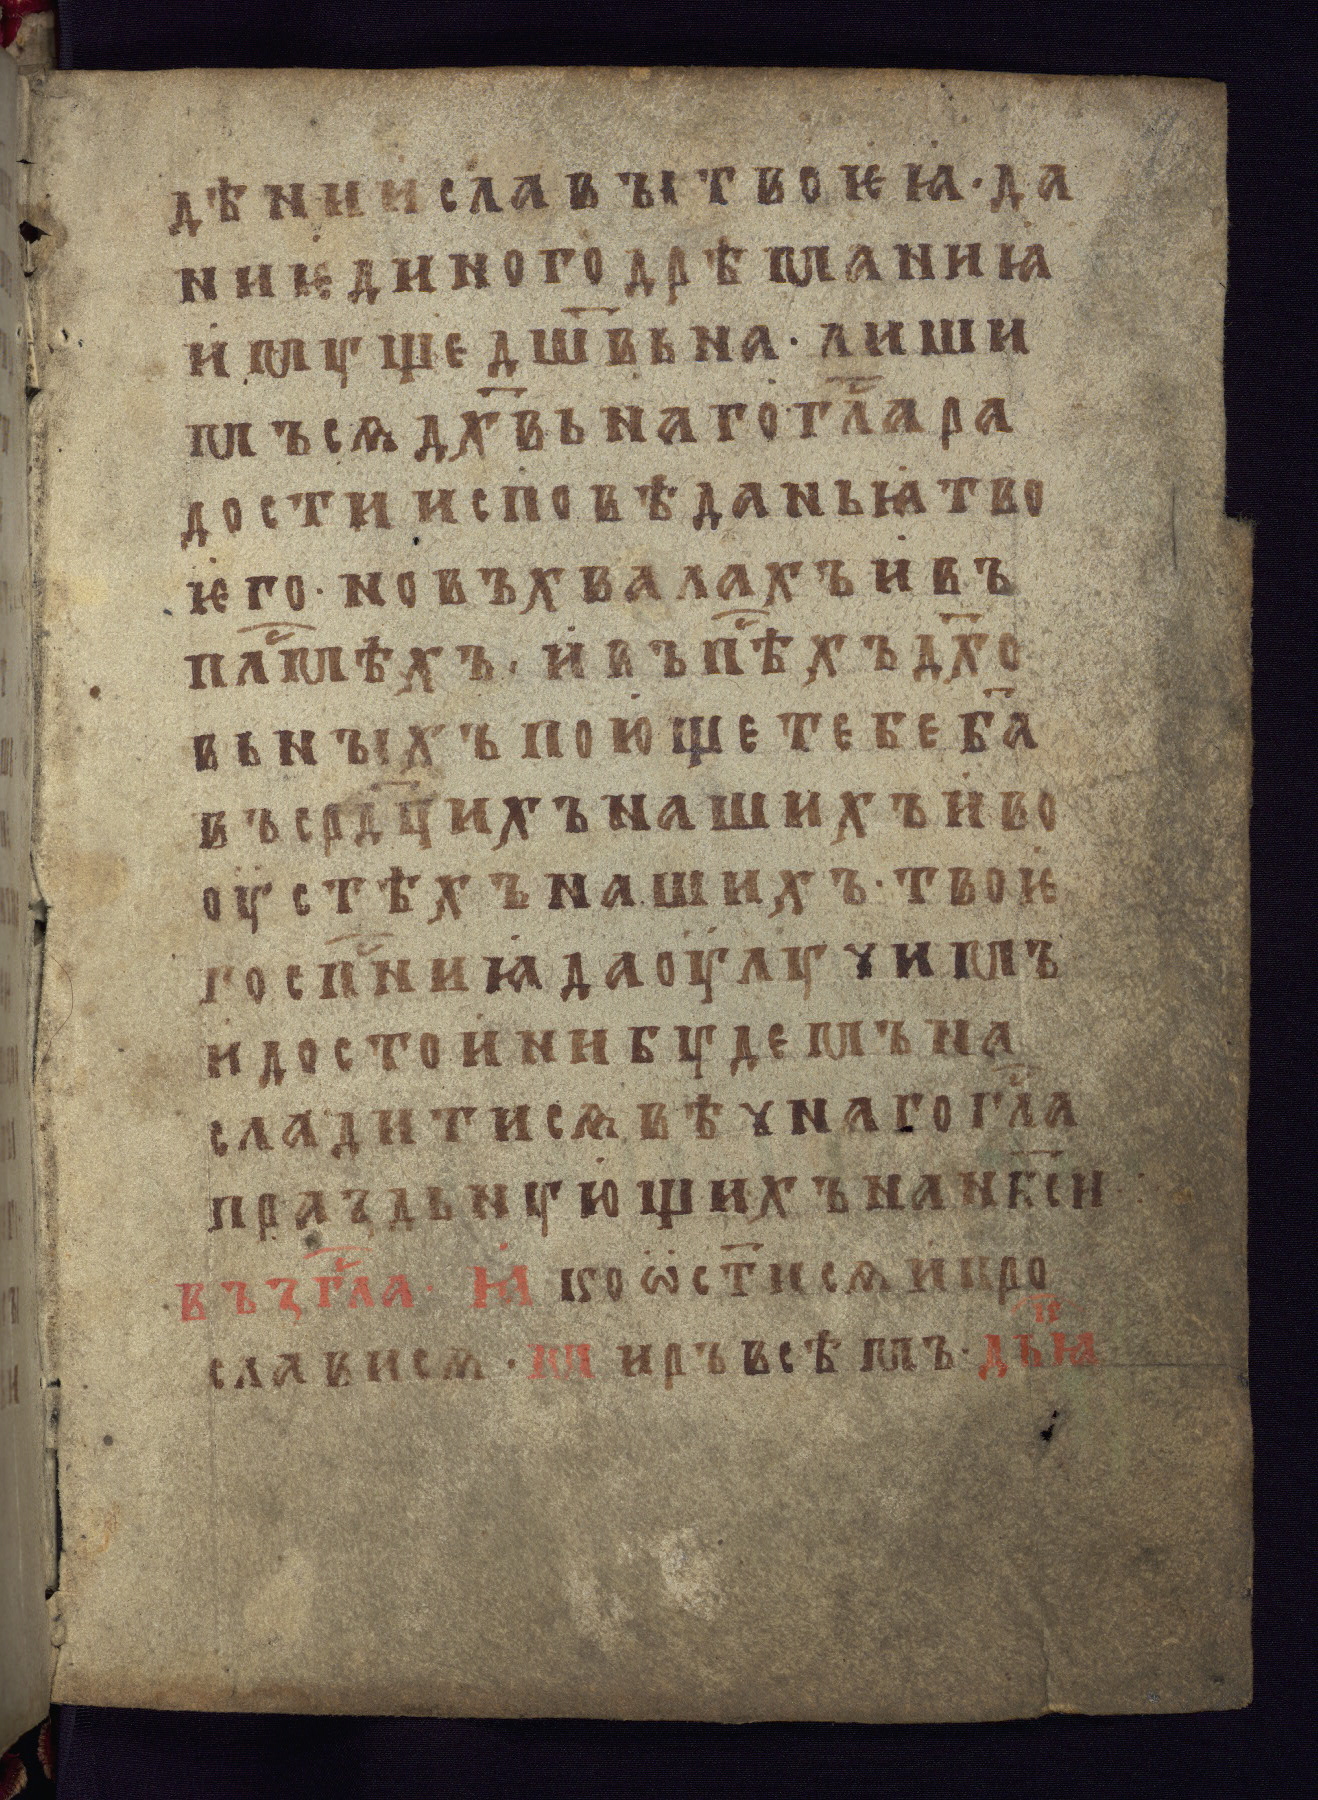 дѣнии славꙑ твоѥꙗ · да
ни ѥдиного дрѣманиꙗ
имꙋще дш҃вьна · лиши
мъсѧ дх҃вьнаго гл҃а ра
дости исповѣданьꙗ тво
ѥго · но въ хвалахъ и въ
плⷭ҇мѣхъ · и въ пⷭ҇ѣхъ дх҃о
вьнꙑхъ поюще тебе ба҃
въ срдц҃ихъ нашихъ и во
оустѣхъ нашихъ · твоѥ
го спⷭ҇ниꙗ да оулꙋчимъ
и достоини бꙋдемъ на
сладитисѧ вѣчнаго гл҃а
праꙁдьнꙋющихъ на нб҃си
въꙁгл҃а · ꙗко ѡст҃исѧ и про
слависѧ · миръ всѣмъ · дьꙗ